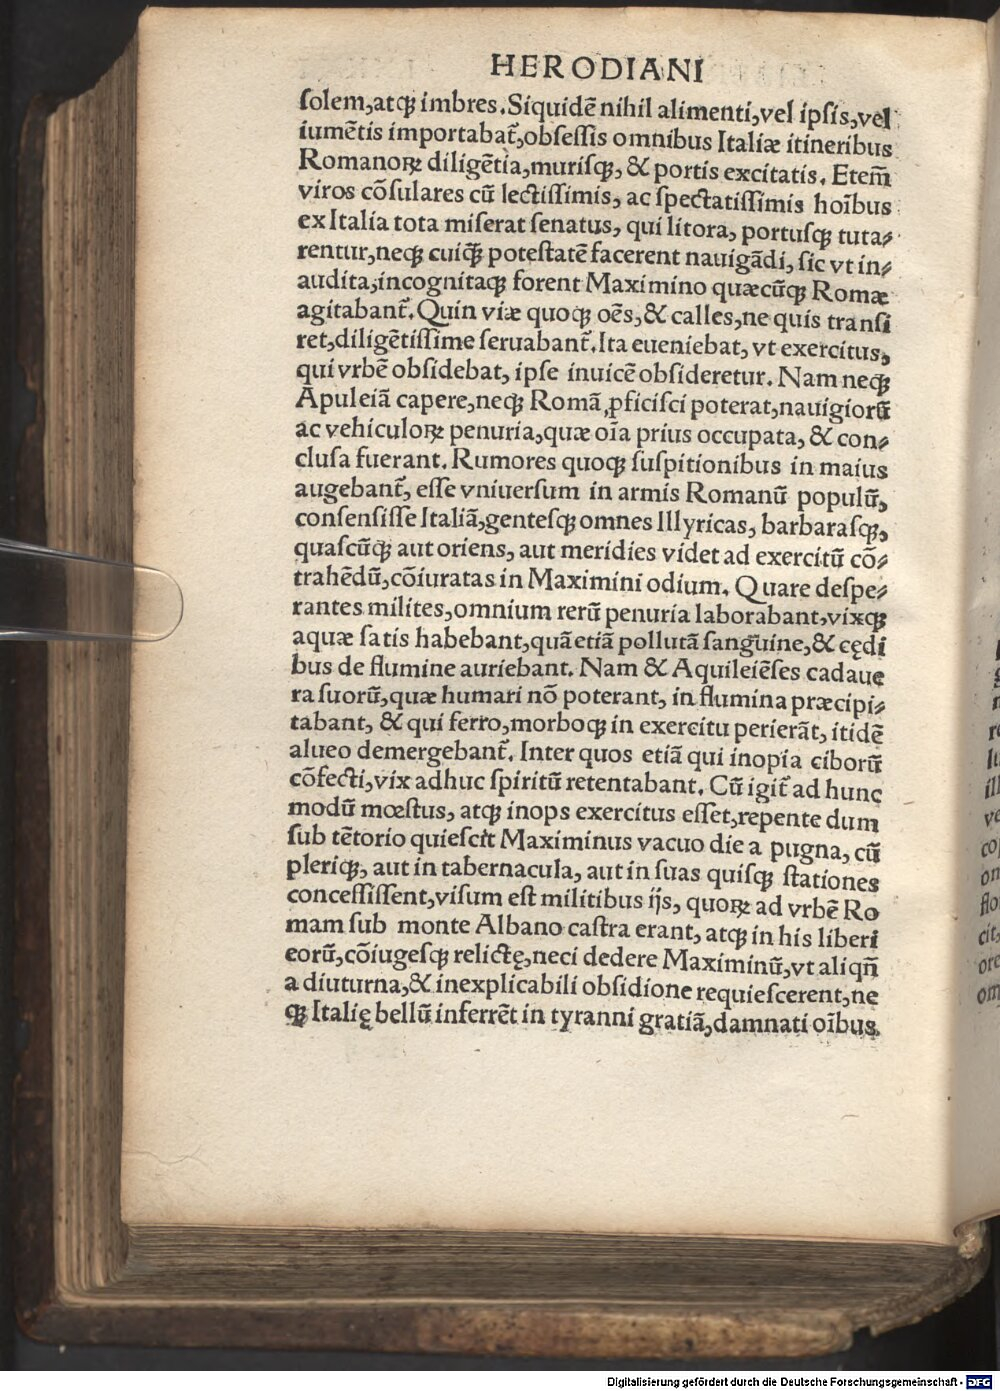 HERODIANI
ſolem,atq; imbres.Siquidē nihil alimenti,vel ipſis,vel
iumētis importabat̃,obſeſſis omnibus Italiæ itineribus
Romanoꝝ diligētia,muriſq;, & portis excitatis. Etem̃
viros cōſulares cū lectiſſimis, ac ſpectatiſſimis hoībus
ex Italia tota miſerat ſenatus, qui litora, portuſq; tuta-
rentur,neq; cuiq̃ poteſtatē facerent nauigādi, ſic vt in-
audita,incognitaq; forent Maximino quæcūq; Romæ
agitabant̃.Quin viæ quoq; oēs,& calles,ne quis tranſi
ret,diligētiſſime ſeruabant̃.Ita eueniebat, vt exercitus,
qui vrbē obſidebat, ipſe inuicē obſideretur. Nam neq;
Apuleiā capere,neq; Romā ꝓficiſci poterat,nauigiorū
ac vehiculoꝝ penuria,quæ oīa prius occupata, & con-
cluſa fuerant. Rumores quoq; ſuſpitionibus in maius
augebant̃, eſſe vniuerſum in armis Romanū populū,
conſenſiſſe Italiā,genteſq; omnes Illyricas, barbaraſq;,
quaſcūq; aut oriens, aut meridies videt ad exercitū cō-
trahēdū,cōiuratas in Maximini odium. Quare deſpe-
rantes milites,omnium rerū penuria laborabant,vixq;
aquæ ſatis habebant,quā etiā pollutā ſanguine,& cędi
bus de flumine auriebant. Nam & Aquileiēſes cadaue
ra ſuorū,quæ humari nō poterant, in flumina præcipi-
tabant, & qui ferro,morboq; in exercitu perierāt, itidē
alueo demergebant̃. Inter quos etiā qui inopia ciborū
cōfecti,vix adhuc ſpiritū retentabant. Cū igit̃ ad hunc
modū mœſtus, atq; inops exercitus eſſet,repente dum
ſub tētorio quieſcit Maximinus vacuo die a pugna, cū
pleriq;, aut in tabernacula, aut in ſuas quiſq; ſtationes
conceſſiſſent,viſum eſt militibus ijs, quoꝝ ad vrbē Ro
mam ſub monte Albano caſtra erant, atq; in his liberi
eorū,cōiugeſq; relictę,neci dedere Maximinū,vt aliqñ
a diuturna,& inexplicabili obſidione requieſcerent,ne
q; Italię bellū inferrēt in tyranni gratiā,damnati oībus.
Digitalisierung gefördert durch die Deutsche Forschungsgemeinschaft - DFG